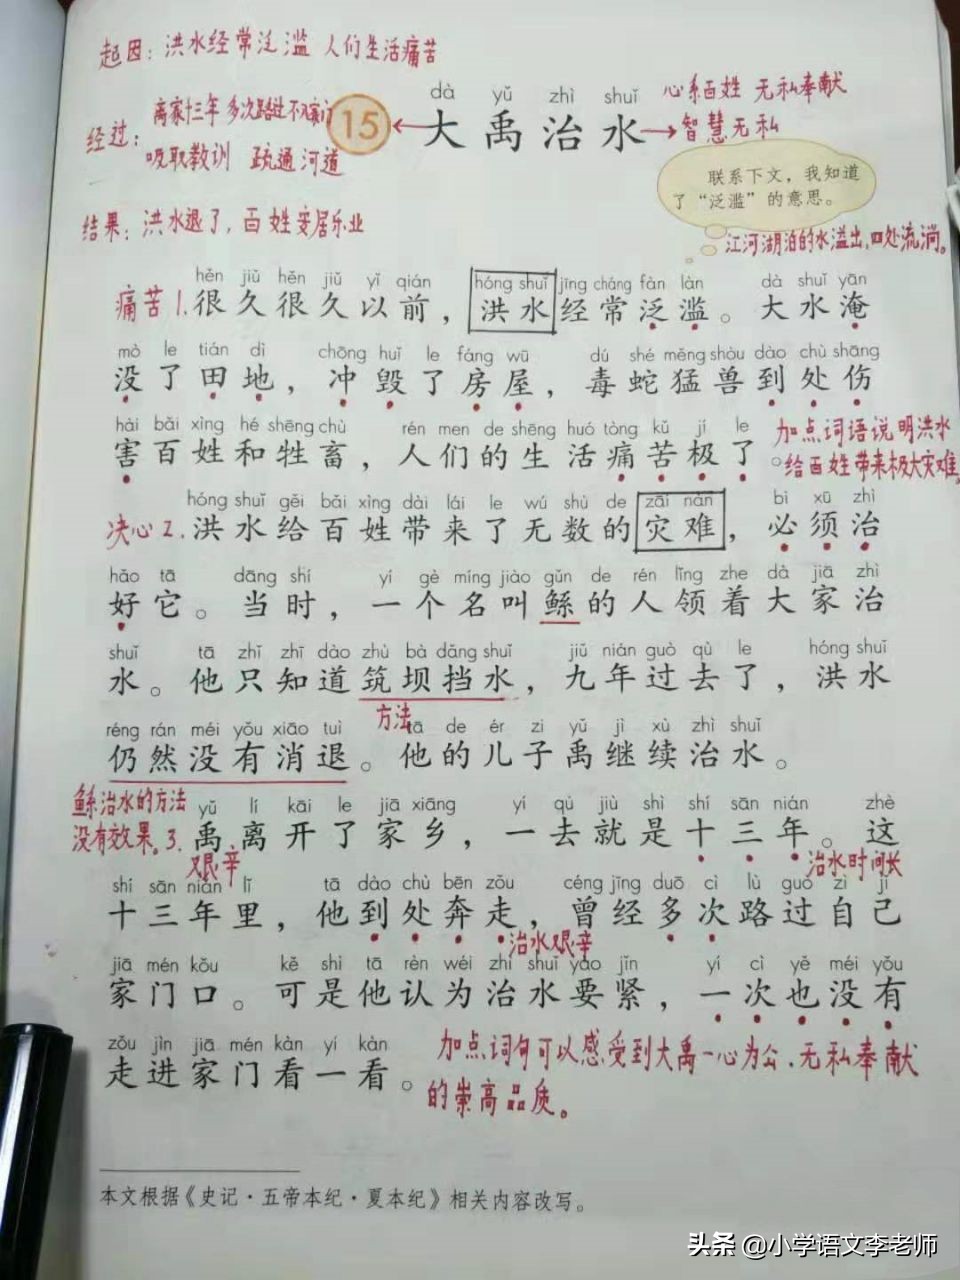 起因：洪水经常泛滥 人们生活痛苦
dà yǔ zhì shuǐ
心系百姓 无私奉献
离家十三年 多次路过不入家门
15
大禹治水
智慧无私
经过：
吸取教训 疏通河道
联系下文，我知道
了“泛滥”的意思。
结果：洪水退了，百姓安居乐业
江河湖泊的水溢出，四处流淌。
hěn jiǔ hěn jiǔ yǐ qián hóng shuǐ jīng cháng fàn làn dà shuǐ yān
痛苦1.很久很久以前，洪水经常泛滥。大水淹
mò le tián dì chōng huǐ le fáng wū dú shé měng shòu dào chù shāng
没了田地，冲毁了房屋，毒蛇猛兽到处伤
hài bǎi xìng hé shēng chù rén men de shēng huó tòng kǔ jí le
害百姓和牲畜，人们的生活痛苦极了。
加点词语说明洪水
给百姓带来极大灾难。
hóng shuǐ gěi bǎi xìng dài lái le wú shù de zāi nàn bì xū zhì
决心2.洪水给百姓带来了无数的灾难，必须治
hǎo tā dāng shí yí gè míng jiào gǔn de rén lǐng zhe dà jiā zhì
好它。当时，一个名叫鲧的人领着大家治
shuǐ tā zhǐ zhī dào zhù bà dǎng shuǐ jiǔ nián guò qù le hóng shuǐ
水。他只知道筑坝挡水，九年过去了，洪水
方法
réng rán méi yǒu xiāo tuì tā de ér zi yǔ jì xù zhì shuǐ
仍然没有消退。他的儿子禹继续治水。
鲧治水的方法
没有效果。
yǔ lí kāi le jiā xiāng yí qù jiù shì shí sān nián zhè
3.禹离开了家乡，一去就是十三年。这
艰辛
治水时间长
shí sān nián lǐ tā dào chù bēn zǒu céng jīng duō cì lù guò zì jǐ
十三年里，他到处奔走，曾经多次路过自己
治水艰辛
jiā mén kǒu kě shì tā rèn wéi zhì shuǐ yào jǐn yí cì yě méi yǒu
家门口。可是他认为治水要紧，一次也没有
zǒu jìn jiā mén kàn yí kàn
走进家门看一看。
加点词句可以感受到大禹一心为公、无私奉献
的崇高品质。
本文根据《史记·五帝本纪·夏本纪》相关内容改写。
头条 @小学语文李老师